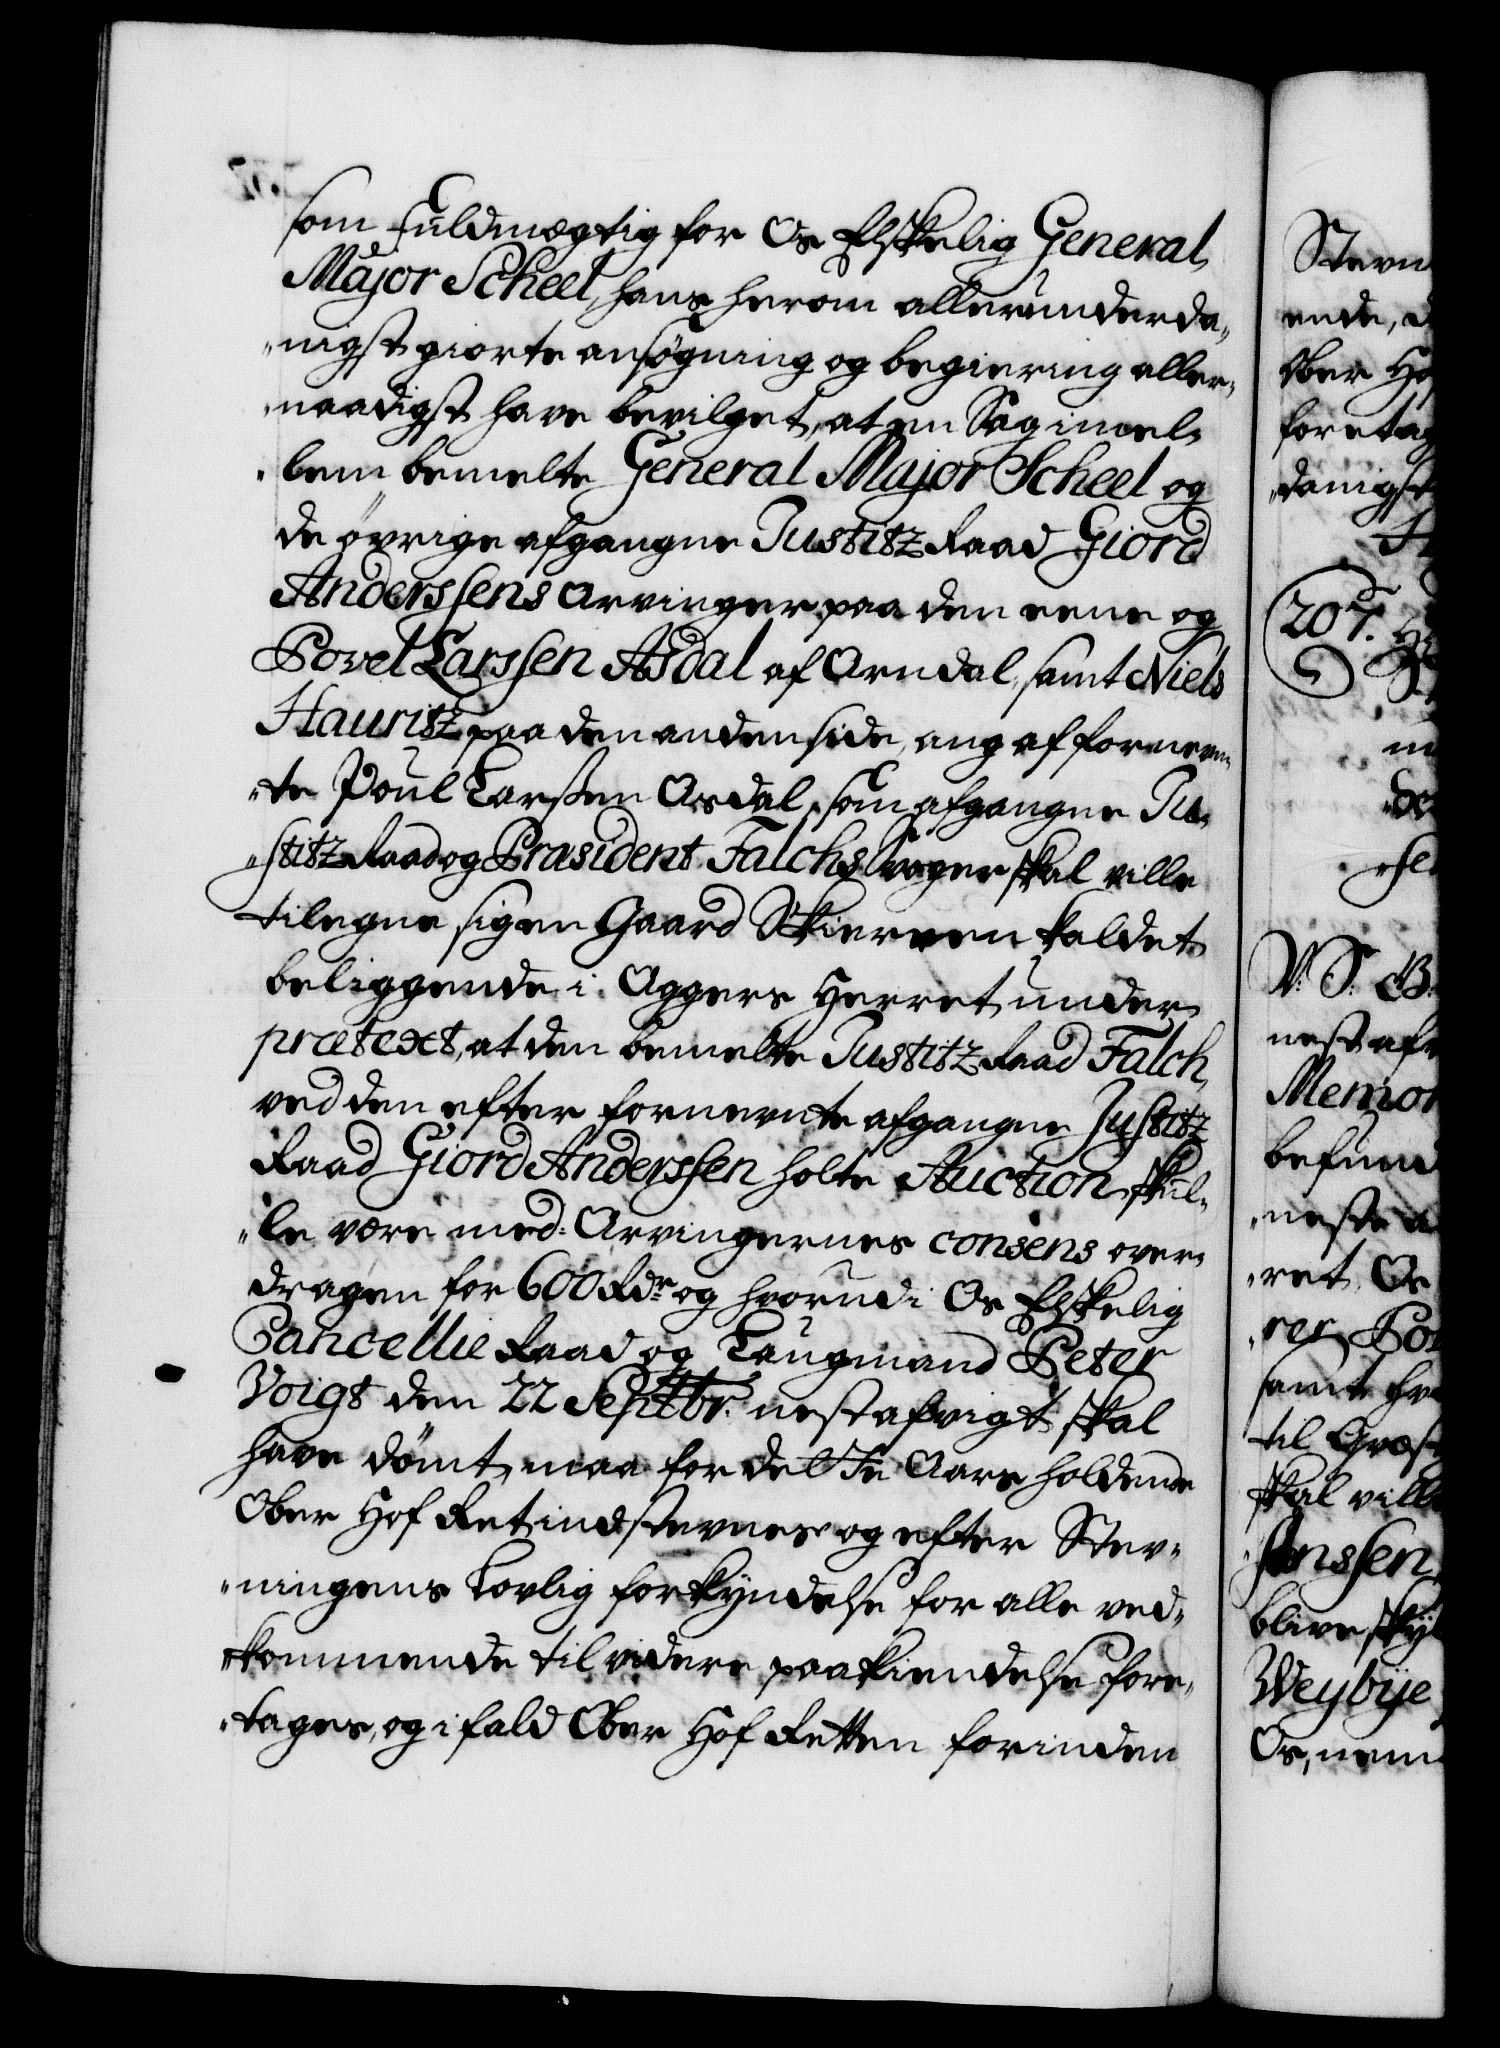 som fuldmægtig for Os Elskelig General
Major Scheel, hans herom allerunderda„
„nigst giorte ansøgning og begiering aller„
„naadigst have bevilget, at en Sag imel„
„lem bemelte General Major Scheel og
de øvrige afgangne Justitz Raad Giord
Anderssens Arvinger paa den eene og
Povel Larssen Asdal af Arndal, samt Niels
Hauritz paa den anden side, ang. af fornevn„
„te Poul Larssen Asdal, som afgangne Ju„
„stitz Raad og Præsident Falchs Svoger skal ville
tilegne sig en Gaard Skierven kaldet
beliggende i Aggers Herret under
prætext, at den bemelte Justitz Raad Falch,
ved den efter fornevnte afgangne Justitz
Raad Giord Anderssen holte Auction, skul„
„le være med Arvingernes consens over„
dragen for 600 Rdr og hvorudi Os Elskelig
Cancellie Raad og Laugmand Peter
Voigt den 22 Septbr. nestafvigt skal
have dømt, maa for del Te Aars holdende
Ober Hof Ret indstevnes og efter Stev„
„ningens Lovlig forkyndelse for alle ved„
„kommende til videre paakiendelse fore„
„tages, og ifald Ober Hof Retten forinden
Stevn
ende, d
Ober Ho
foretag
„danigst
207.
V: S: G:
nest afv
Memor
befund
„neste a
„ret, Os
„rer Po
samt hv
til Græs
skal ville
„Jnssen
blive sky
Weybÿe
Os, nem